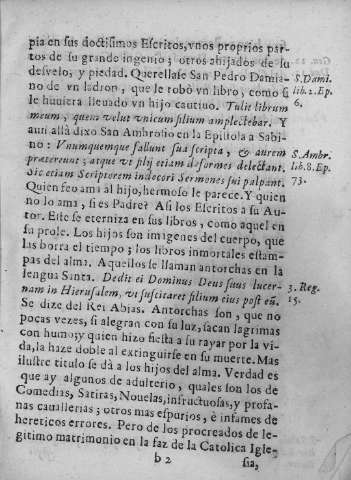 pia en sus doctisimos Escritos, vnos proprios par-
tos de su grande ingenio; otros ahijados de su
desvelo, y piedad. Querellase San Pedro Damia-
no de vn ladron, que le robò vn libro, como si
le huuiera lleuado vn hijo cautiuo. Tulit librum
meum, quem velut vnicum filium amplectebar. Y
aun allà dixo San Ambrosio en la Epistola a Sabi-
no: Vnumquemque fallunt sua scripta, & aurem
prætereunt; atque vt filij etiam deformes delectant,
sic etiam Scriptorem indecori Sermones sui palpant.
Quien feo ama al hijo, hermoso le parece. Y quien
no lo ama, si es Padre? Asi los Escritos a su Au-
tor. Este se eterniza en sus libros, como aquel en
su prole. Los hijos son imagenes del cuerpo, que
las borra el tiempo; los libros inmortales estam-
pas del alma. Aquellos se llaman antorchas en la
lengua Santa. Dedit ei Dominus Deus suus lucer-
nam in Hierusalem, vt suscitaret filium eius post eū.
Se dize del Rei Abias. Antorchas son, que no
pocas vezes, si alegran con su luz, sacan lagrimas
con humo; y quien hizo fiesta a su rayar por la vi-
da, la haze doble al extinguirse en su muerte. Mas
ilustre titulo se dà a los hijos del alma. Verdad es
que ay algunos de adulterio, quales son los de
Comedias, Satiras, Nouelas, infructuosas, y profa-
nas cauallerias; otros mas espurios, è infames de
hereticos errores. Pero de los procreados de le-
gitimo matrimonio en la faz de la Catolica Igle-
b 2 sia,
S. Dami.
lib. 2. Ep.
6.
S. Ambr.
lib. 8. Ep.
73.
3. Reg.
15.